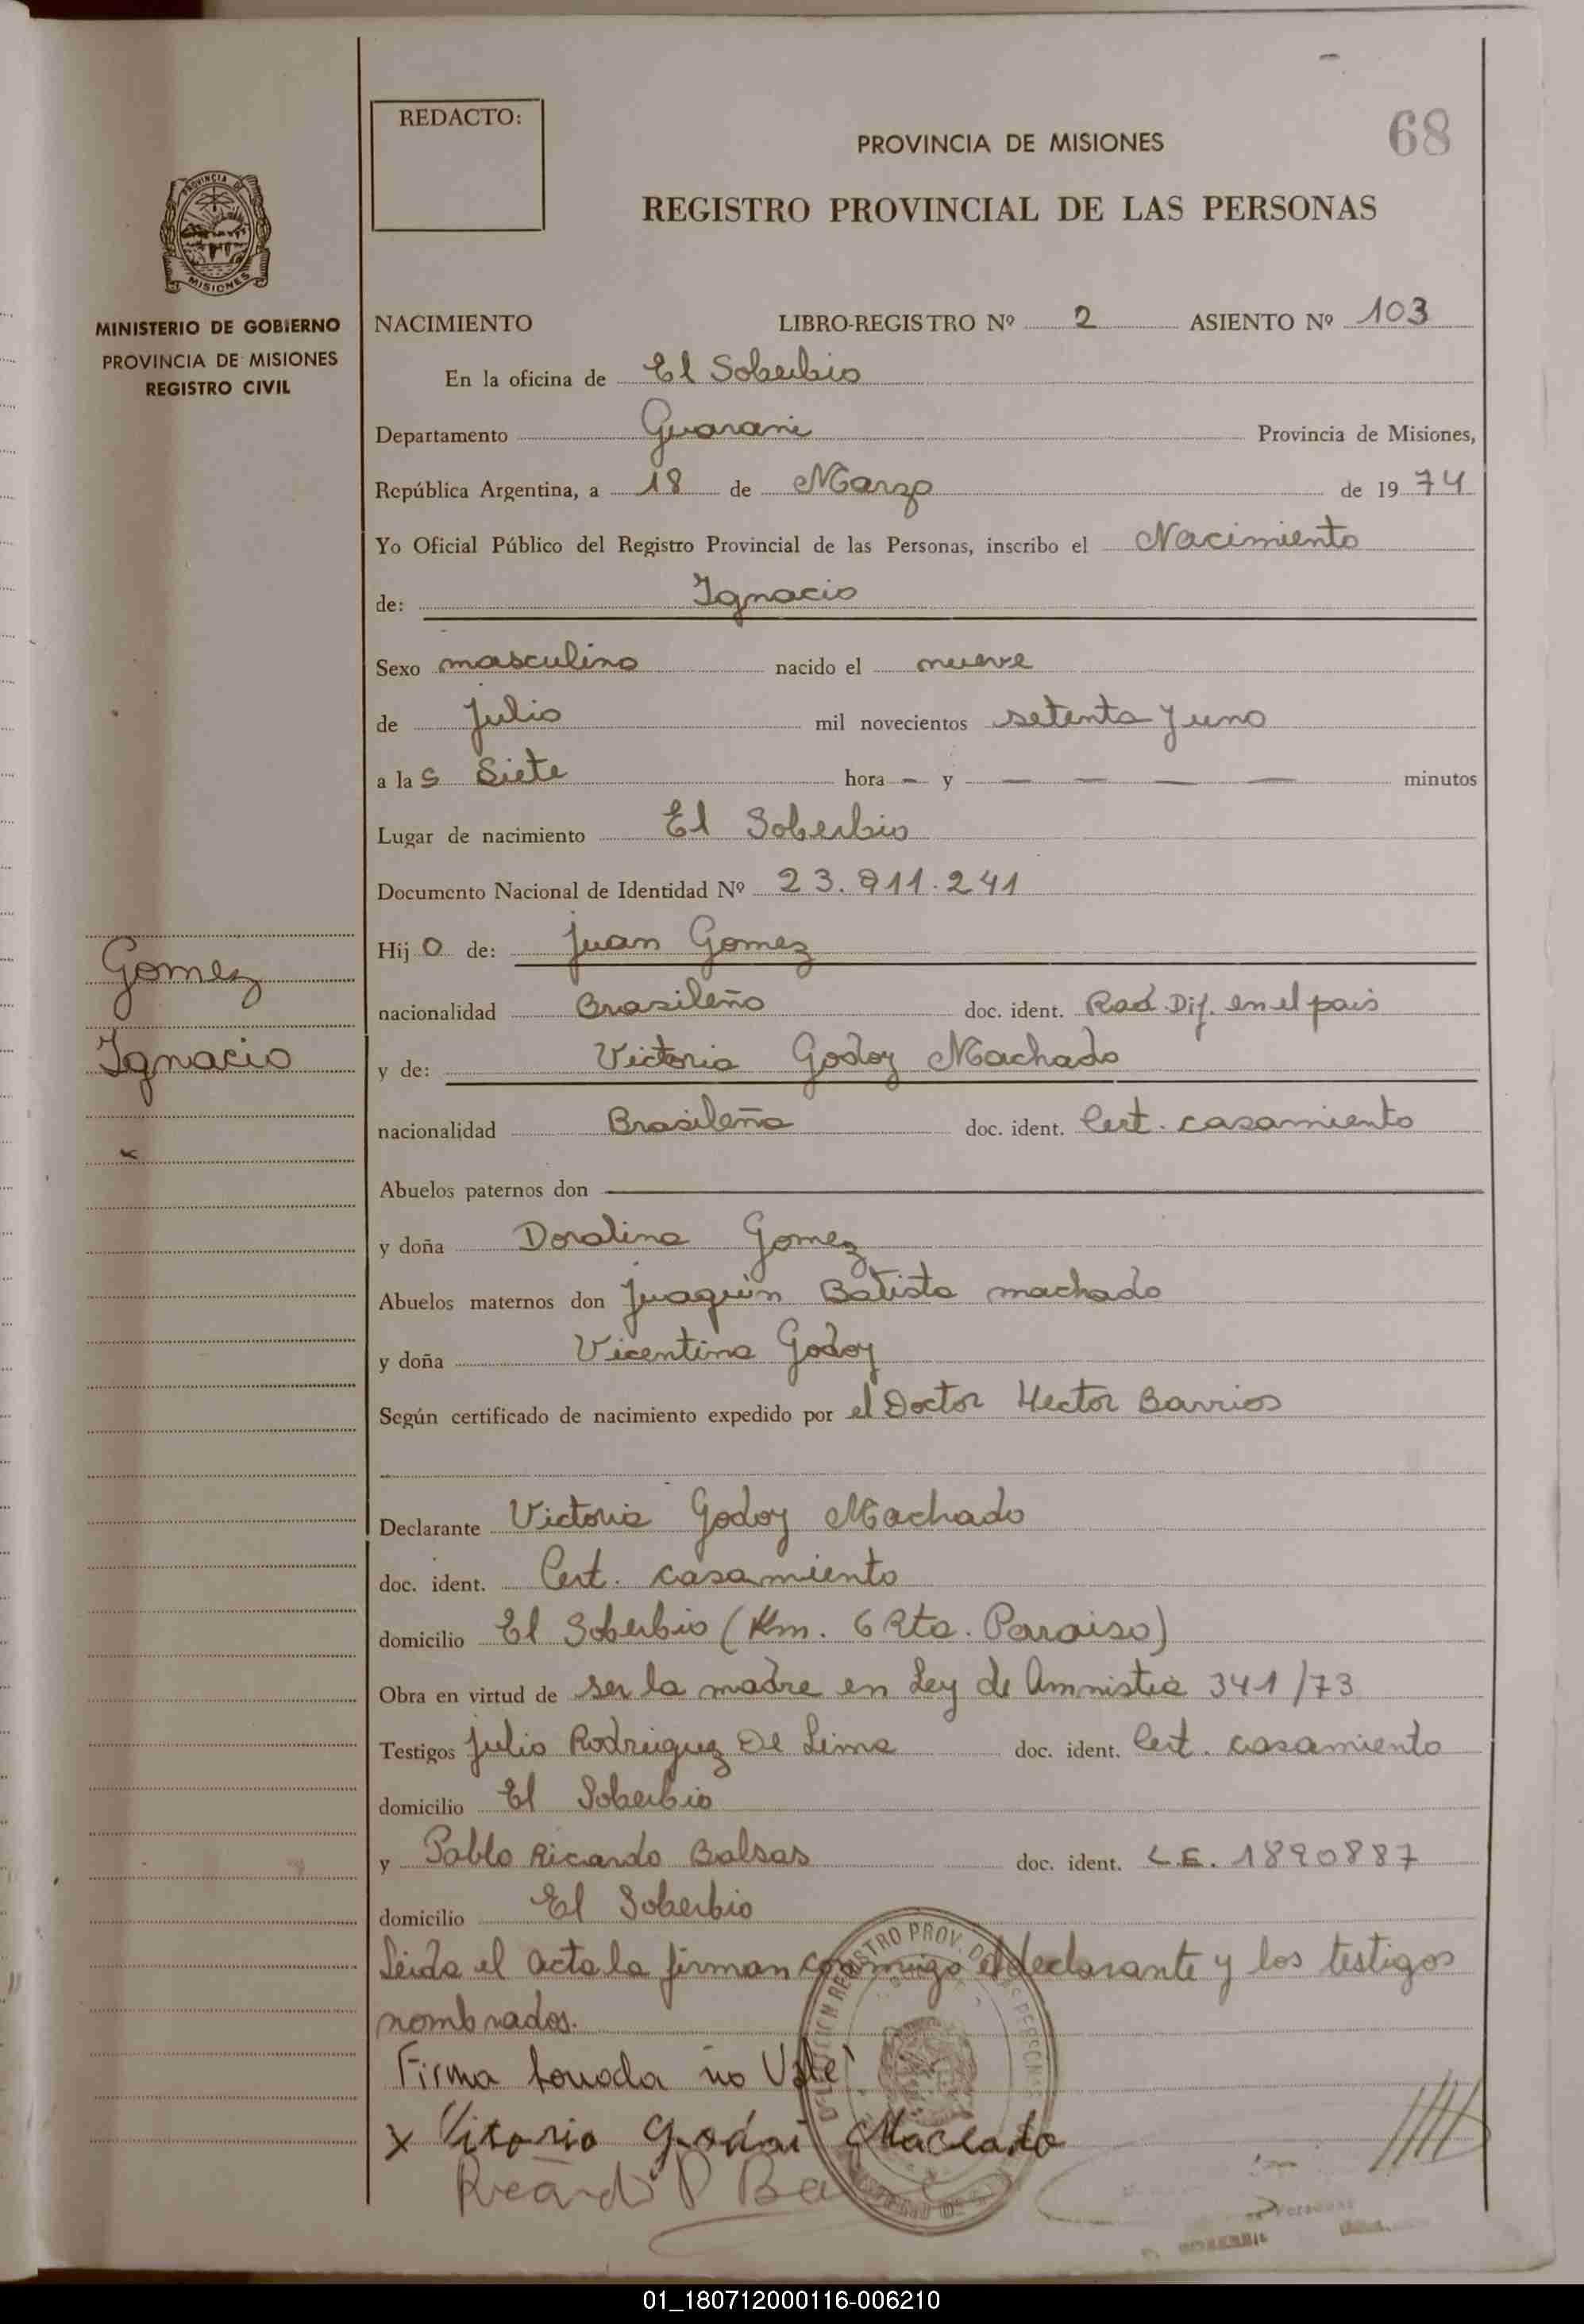 REDACTO:
68
PROVINCIA DE MISIONES
REGISTRO PROVINCIAL DE LAS PERSONAS
PROVINCIA DE
MISIONES
MINISTERIO DE GOBIERNO
PROVINCIA DE MISIONES
REGISTRO CIVIL
NACIMIENTO LIBRO-REGISTRO Nº 2 ASIENTO Nº 103
En la oficina de El Soberbio
Departamento Guarani Provincia de Misiones,
República Argentina, a 18 de Marzo de 19 74
Yo Oficial Público del Registro Provincial de las Personas, inscribo el Nacimiento
de: Ignacio
Sexo masculino nacido el nueve
de Julio mil novecientos setenta y uno
a la s Siete hora - y — — — — minutos
Lugar de nacimiento El Soberbio
Documento Nacional de Identidad Nº 23.911.241
Hij o de: Juan Gomez
nacionalidad Brasileño doc. ident. Rad. Dif. en el pais
y de: Victoria Godoy Machado
nacionalidad Brasileña doc. ident. Cert. casamiento
Gomez
Ignacio
Abuelos paternos don
y doña Doralina Gomez
Abuelos maternos don Juaquin Batista machado
y doña Vicentina Godoy
Según certificado de nacimiento expedido por el Doctor Hector Barrios
Declarante Victoria Godoy Machado
doc. ident. Cert. casamiento
domicilio El Soberbio (Km. 6 Rta. Paraiso)
Obra en virtud de ser la madre en Ley de Amnistia 341/73
Testigos Julio Rodriguez De Lima doc. ident. Cert. casamiento
domicilio El Soberbio
y Pablo Ricardo Balsas doc. ident. L.E. 1890887
domicilio El Soberbio
Leida el acta la firman conmigo el declarante y los testigos
nombrados.
Firma borrada no Vale
x Vitoria Godoi Maclado
01_180712000116-006210